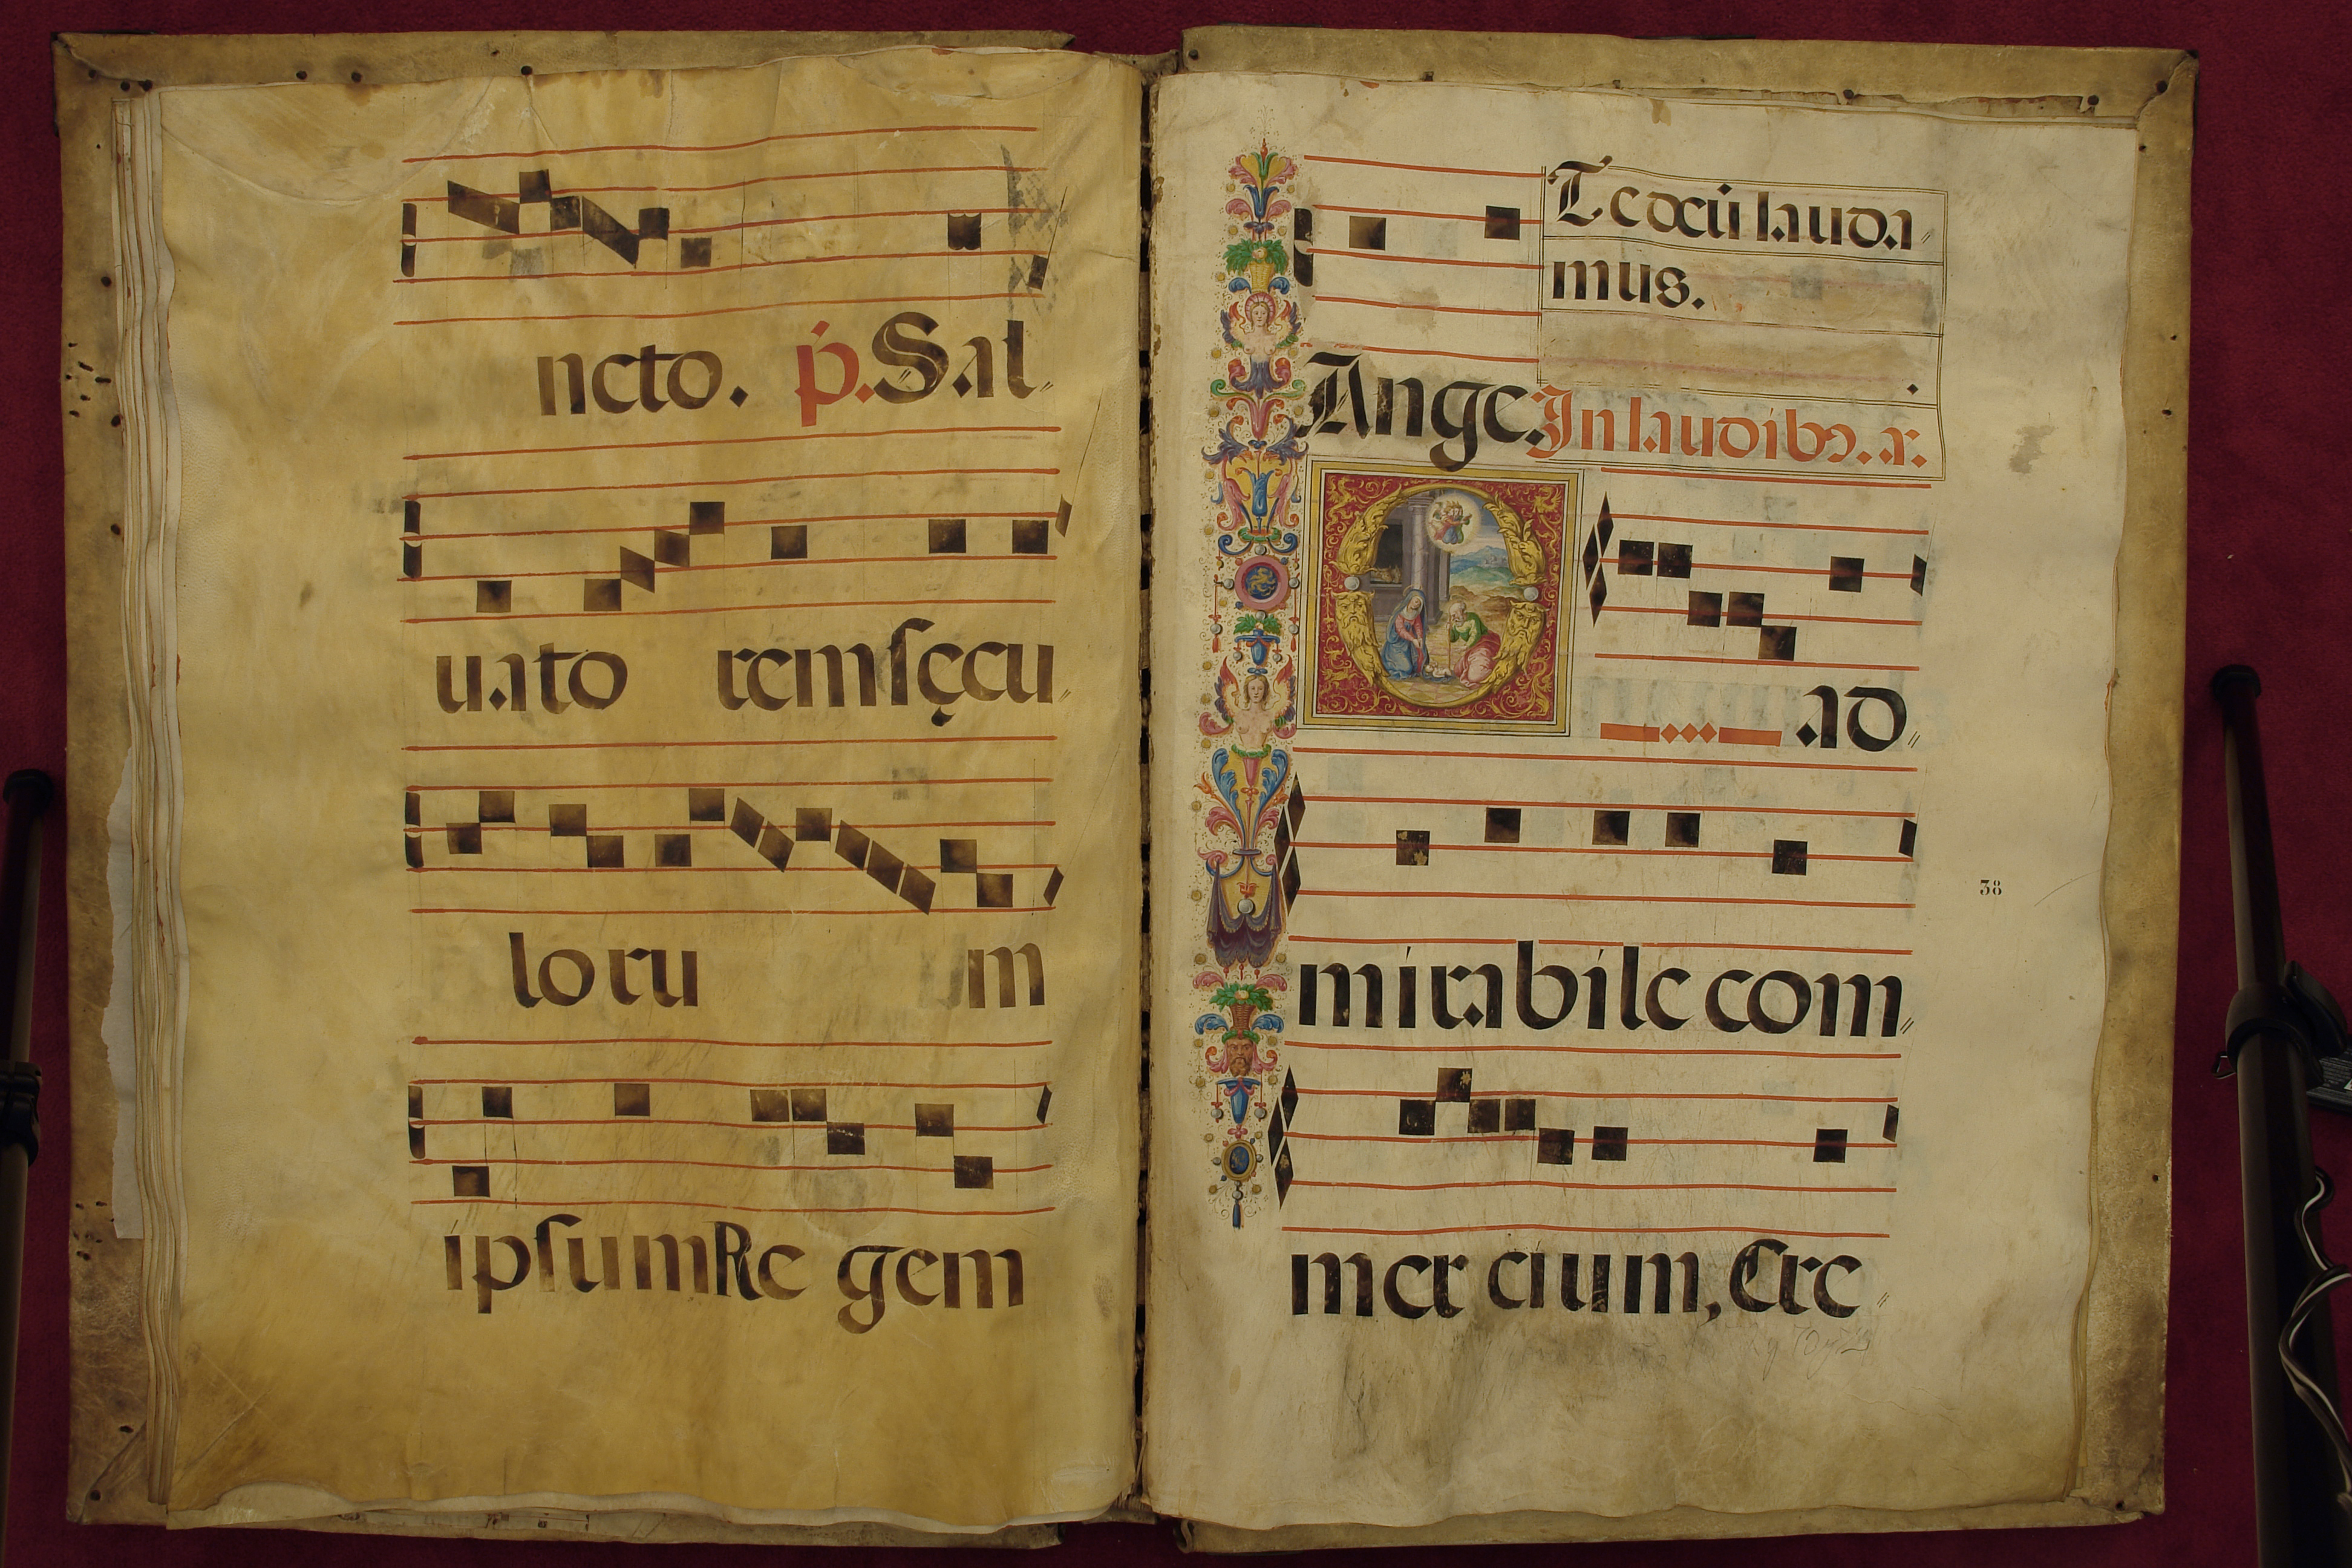 ncto. p. Sal
uato remsęcu
loru m
ipsum Re gem
Te deū lauda
mus.
Ange. In laudibꝫ. a.
O ad
mirabile com
mercium, Cre
38